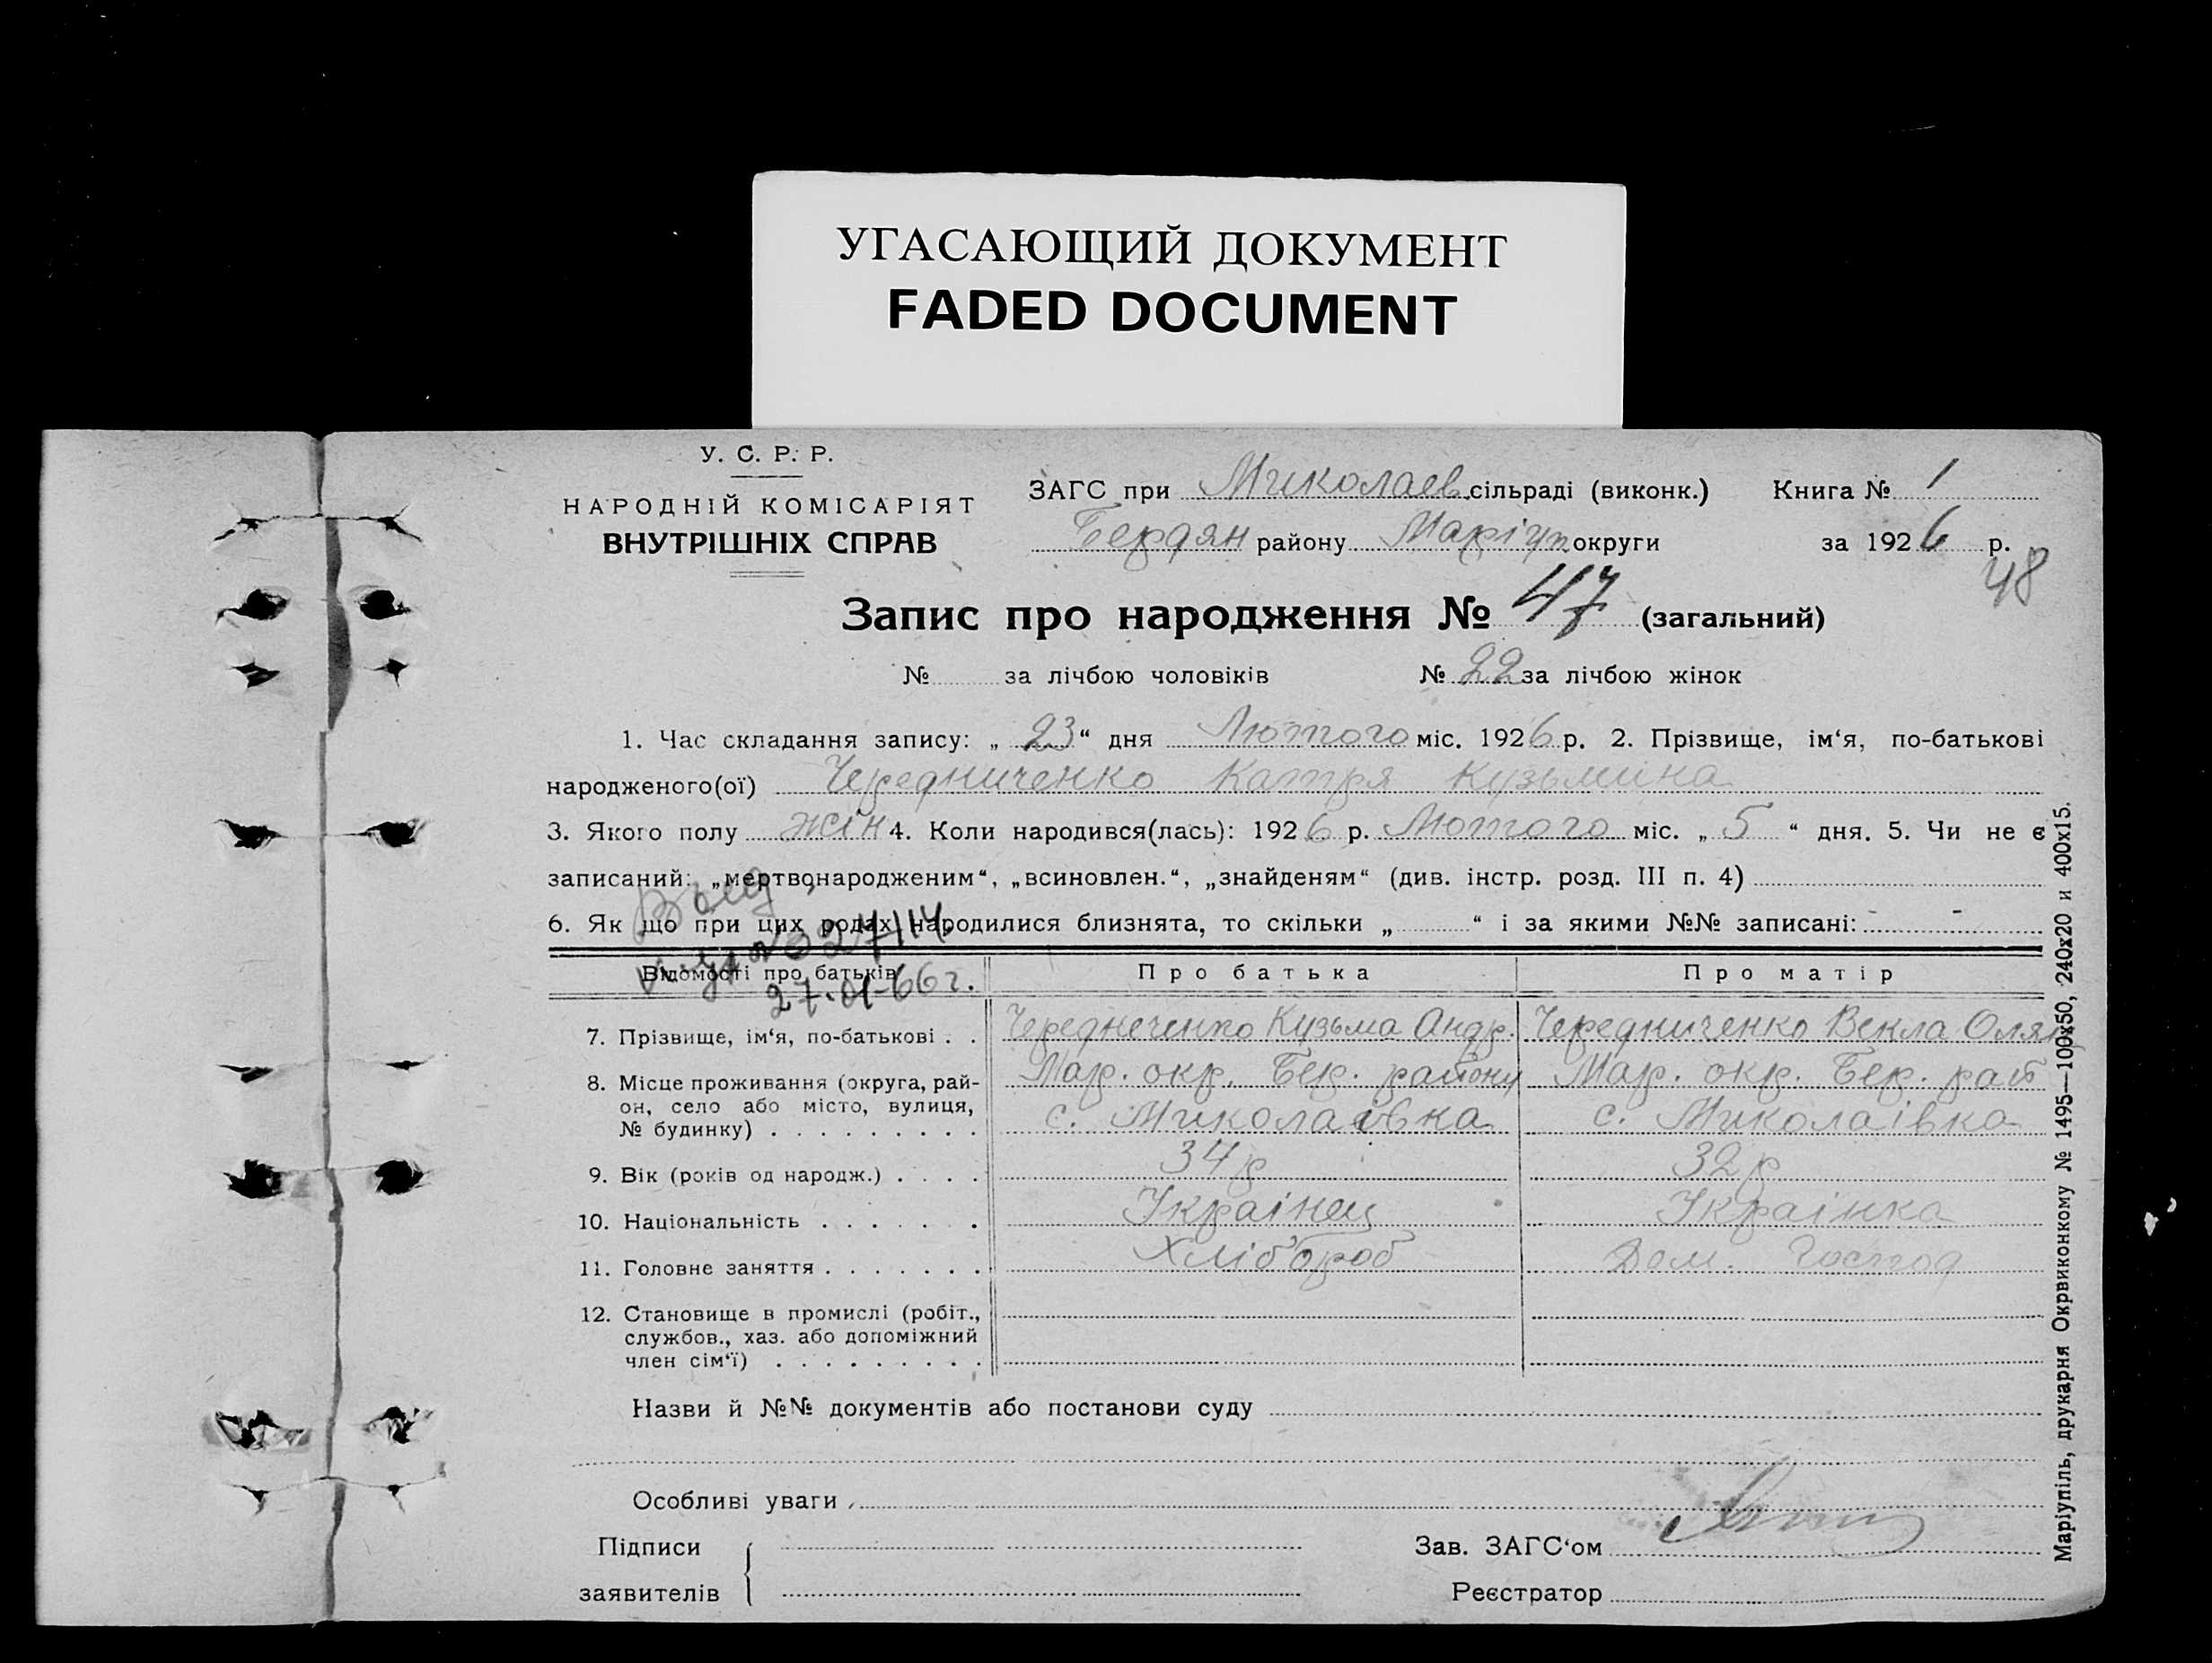 УГАСАЮЩИЙ ДОКУМЕНТ
FADED DOCUMENT
У. С. Р. Р.
НАРОДНІЙ КОМІСАРІЯТ
ВНУТРІШНІХ СПРАВ
ЗАГС при Миколаев. сільраді (виконк.) Книга № 1
Бердян району Маріуп. округи за 1926 р.
48
Запис про народження № 47 (загальний)
№ за лічбою чоловіків № 22 за лічбою жінок
1. Час складання запису: „ 23 “ дня Лютого міс. 1926 р. 2. Прізвище, ім‘я, по-батькові
народженого(ої) Чередниченко Катря Кузьмина
3. Якого полу жін 4. Коли народився(лась): 1926 р. Лютого міс. „ 5 “ дня. 5. Чи не є
записаний: „мертвонародженим“, „всиновлен.“, „знайденям“ (див. інстр. розд. III п. 4)
6. Як що при цих родах народилися близнята, то скільки „ “ і за якими №№ записані: -
027114
27.01-66 г.
Відомості про батьків Про батька Про матір
7. Прізвище, ім‘я, по-батькові . . Череднеченко Кузьма Андр. Чередниченко Векла
8. Місце проживання (округа, рай- Мар. окр. Бер. району Мар. окр. Бер. рай
он, село або місто, вулиця, с. Миколаівка с. Миколаівка
№ будинку) . . . . . . . . .
9. Вік (років од народж.) . . . . 34 р 32 р
10. Національність . . . . . . . Украінец Украінка
11. Головне заняття . . . . . . . Хліб'ороб Дом. Господ
12. Становище в промислі (робіт.,
службов., хаз. або допоміжний
член сім‘ї) . . . . . . . . .
Назви й №№ документів або постанови суду
Особливі уваги
Підписи Зав. ЗАГС‘ом
заявителів Реєстратор
Маріупіль, друкарня Окрвиконкому № 1495—100х50, 240х20 и 400х15.